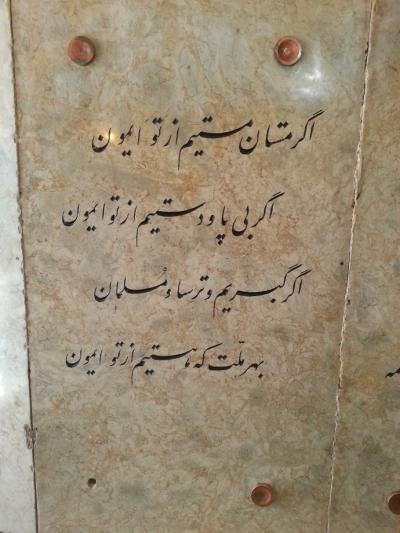 اگر مستان مستیم از تو ایمون
اگر بی پا و دستیم از تو ایمون
اگر گبریم و ترسا و مسلمان
بهر ملّت که هستیم از تو ایمون